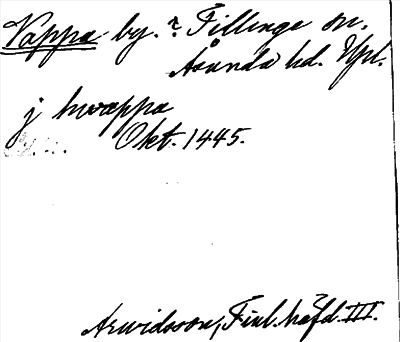 Vappa by. ? Tillinge sn.
Åsunda hd. Upl.
j hwappa
Okt. 1445.
Arwidsson, Finl. häfd. III.